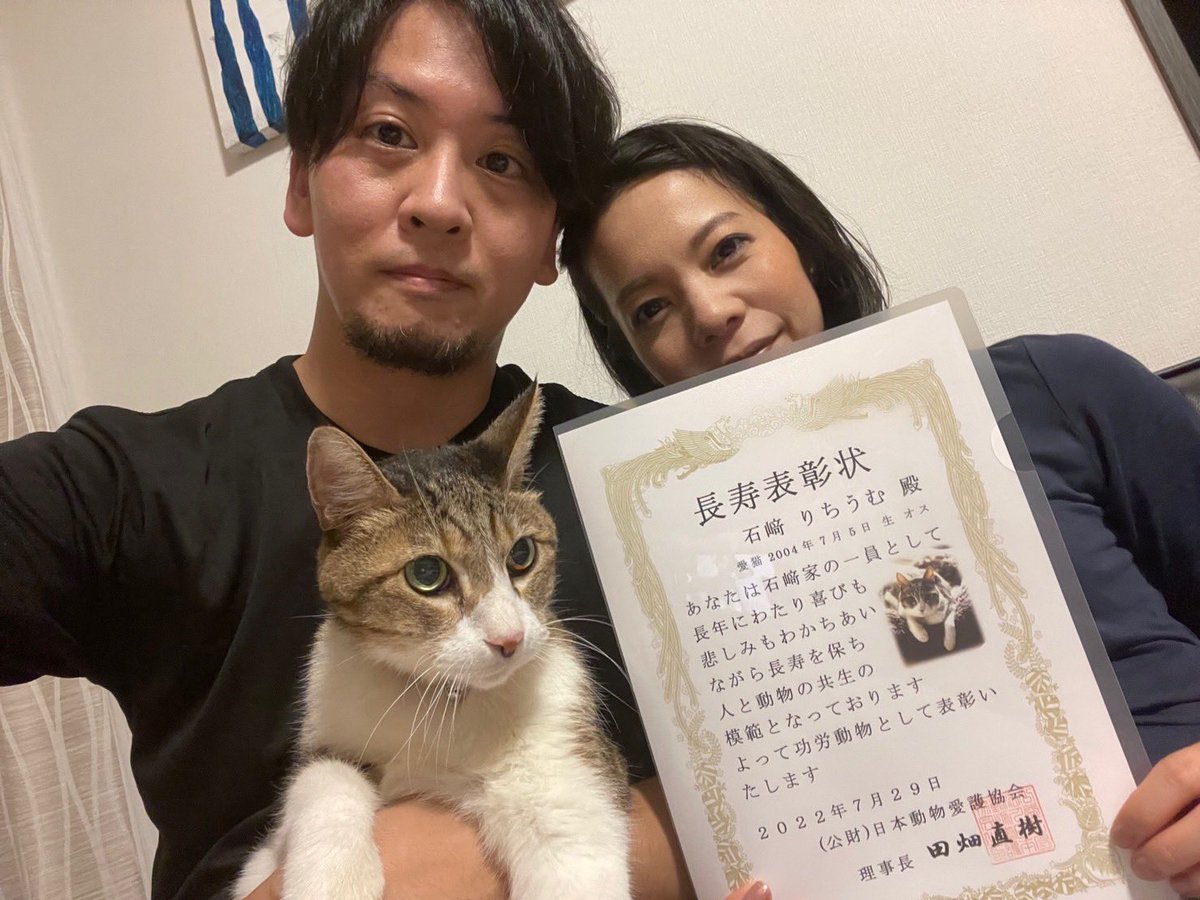 長寿表彰状
石﨑 りちうむ 殿
愛猫 2004年7月5日生 オス
あなたは石﨑家の一員として
長年にわたり喜びも
悲しみもわかちあい
ながら長寿を保ち
人と動物の共生の
模範となっております
よって功労動物として表彰い
たします
2022年7月29日
(公財)日本動物愛護協会
理事長 田畑直樹